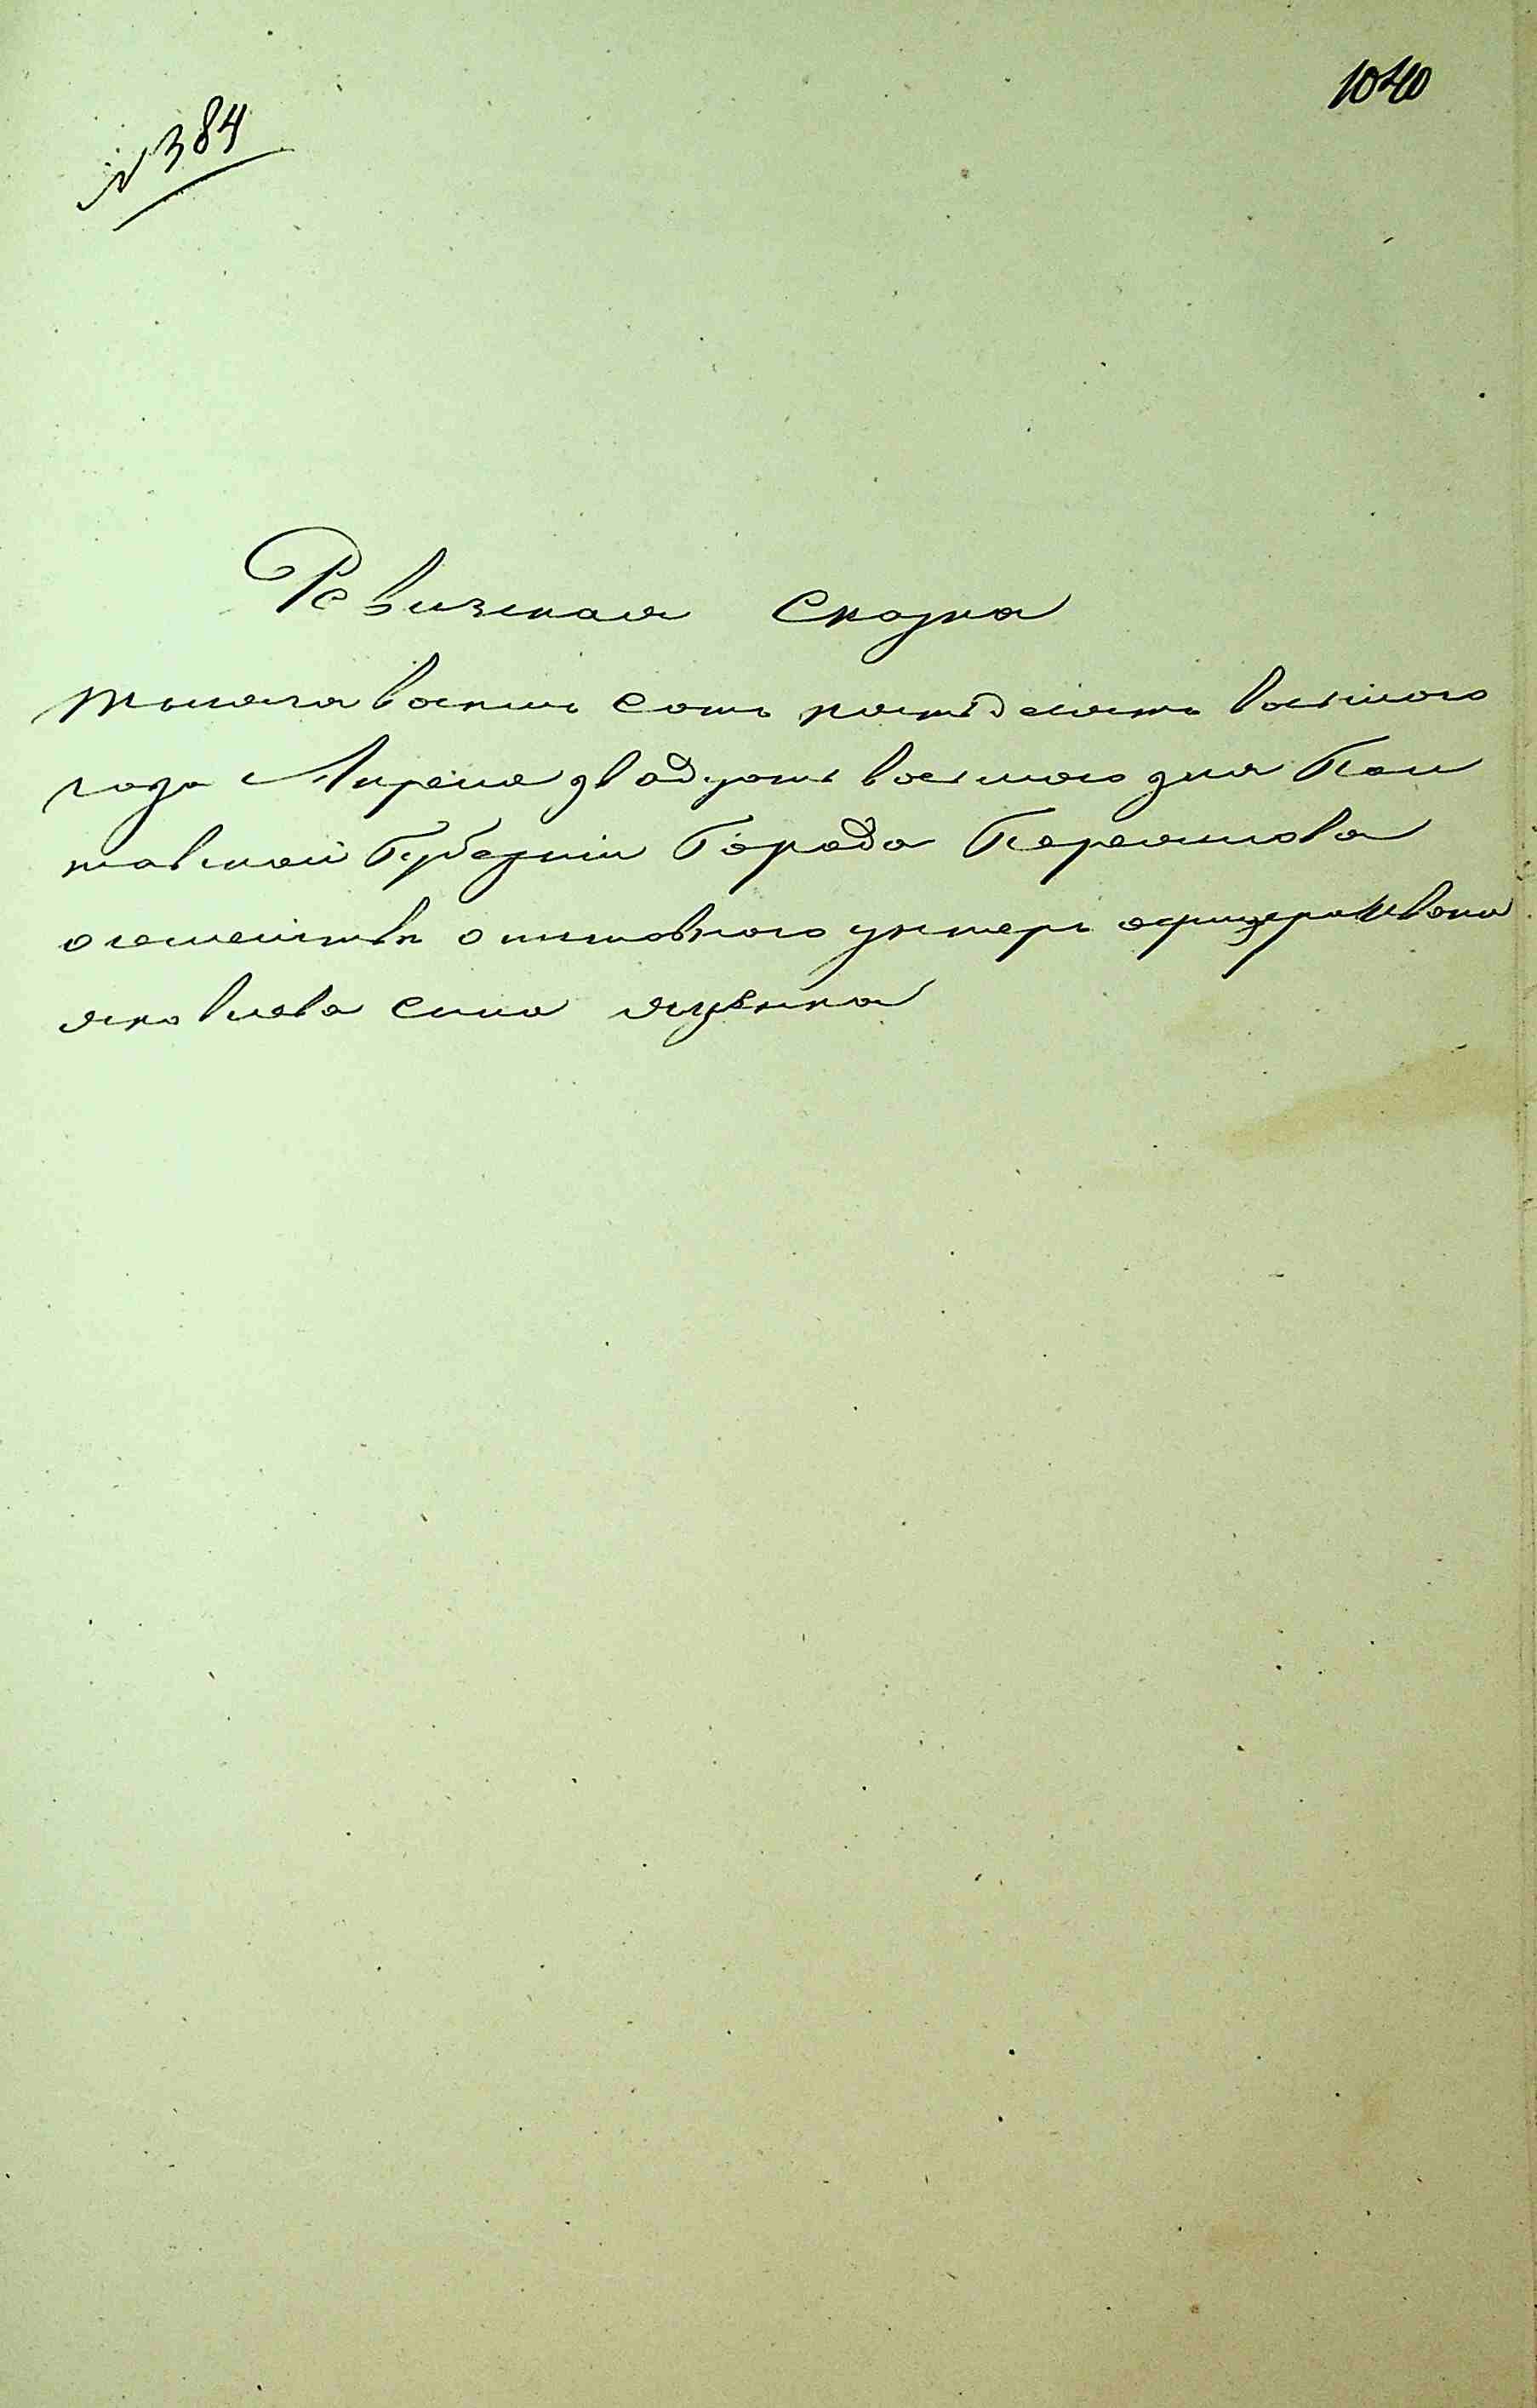 1040
№ 384
Ревизская сказка
тысяча восимь сотъ пятьдесятъ восьмого
года Апреля двадцать восьмого дня Пол
тавской Губернiи Города Переяслова
о семействе отставного унтеръ офицера Ивана
яковлева сына яценка